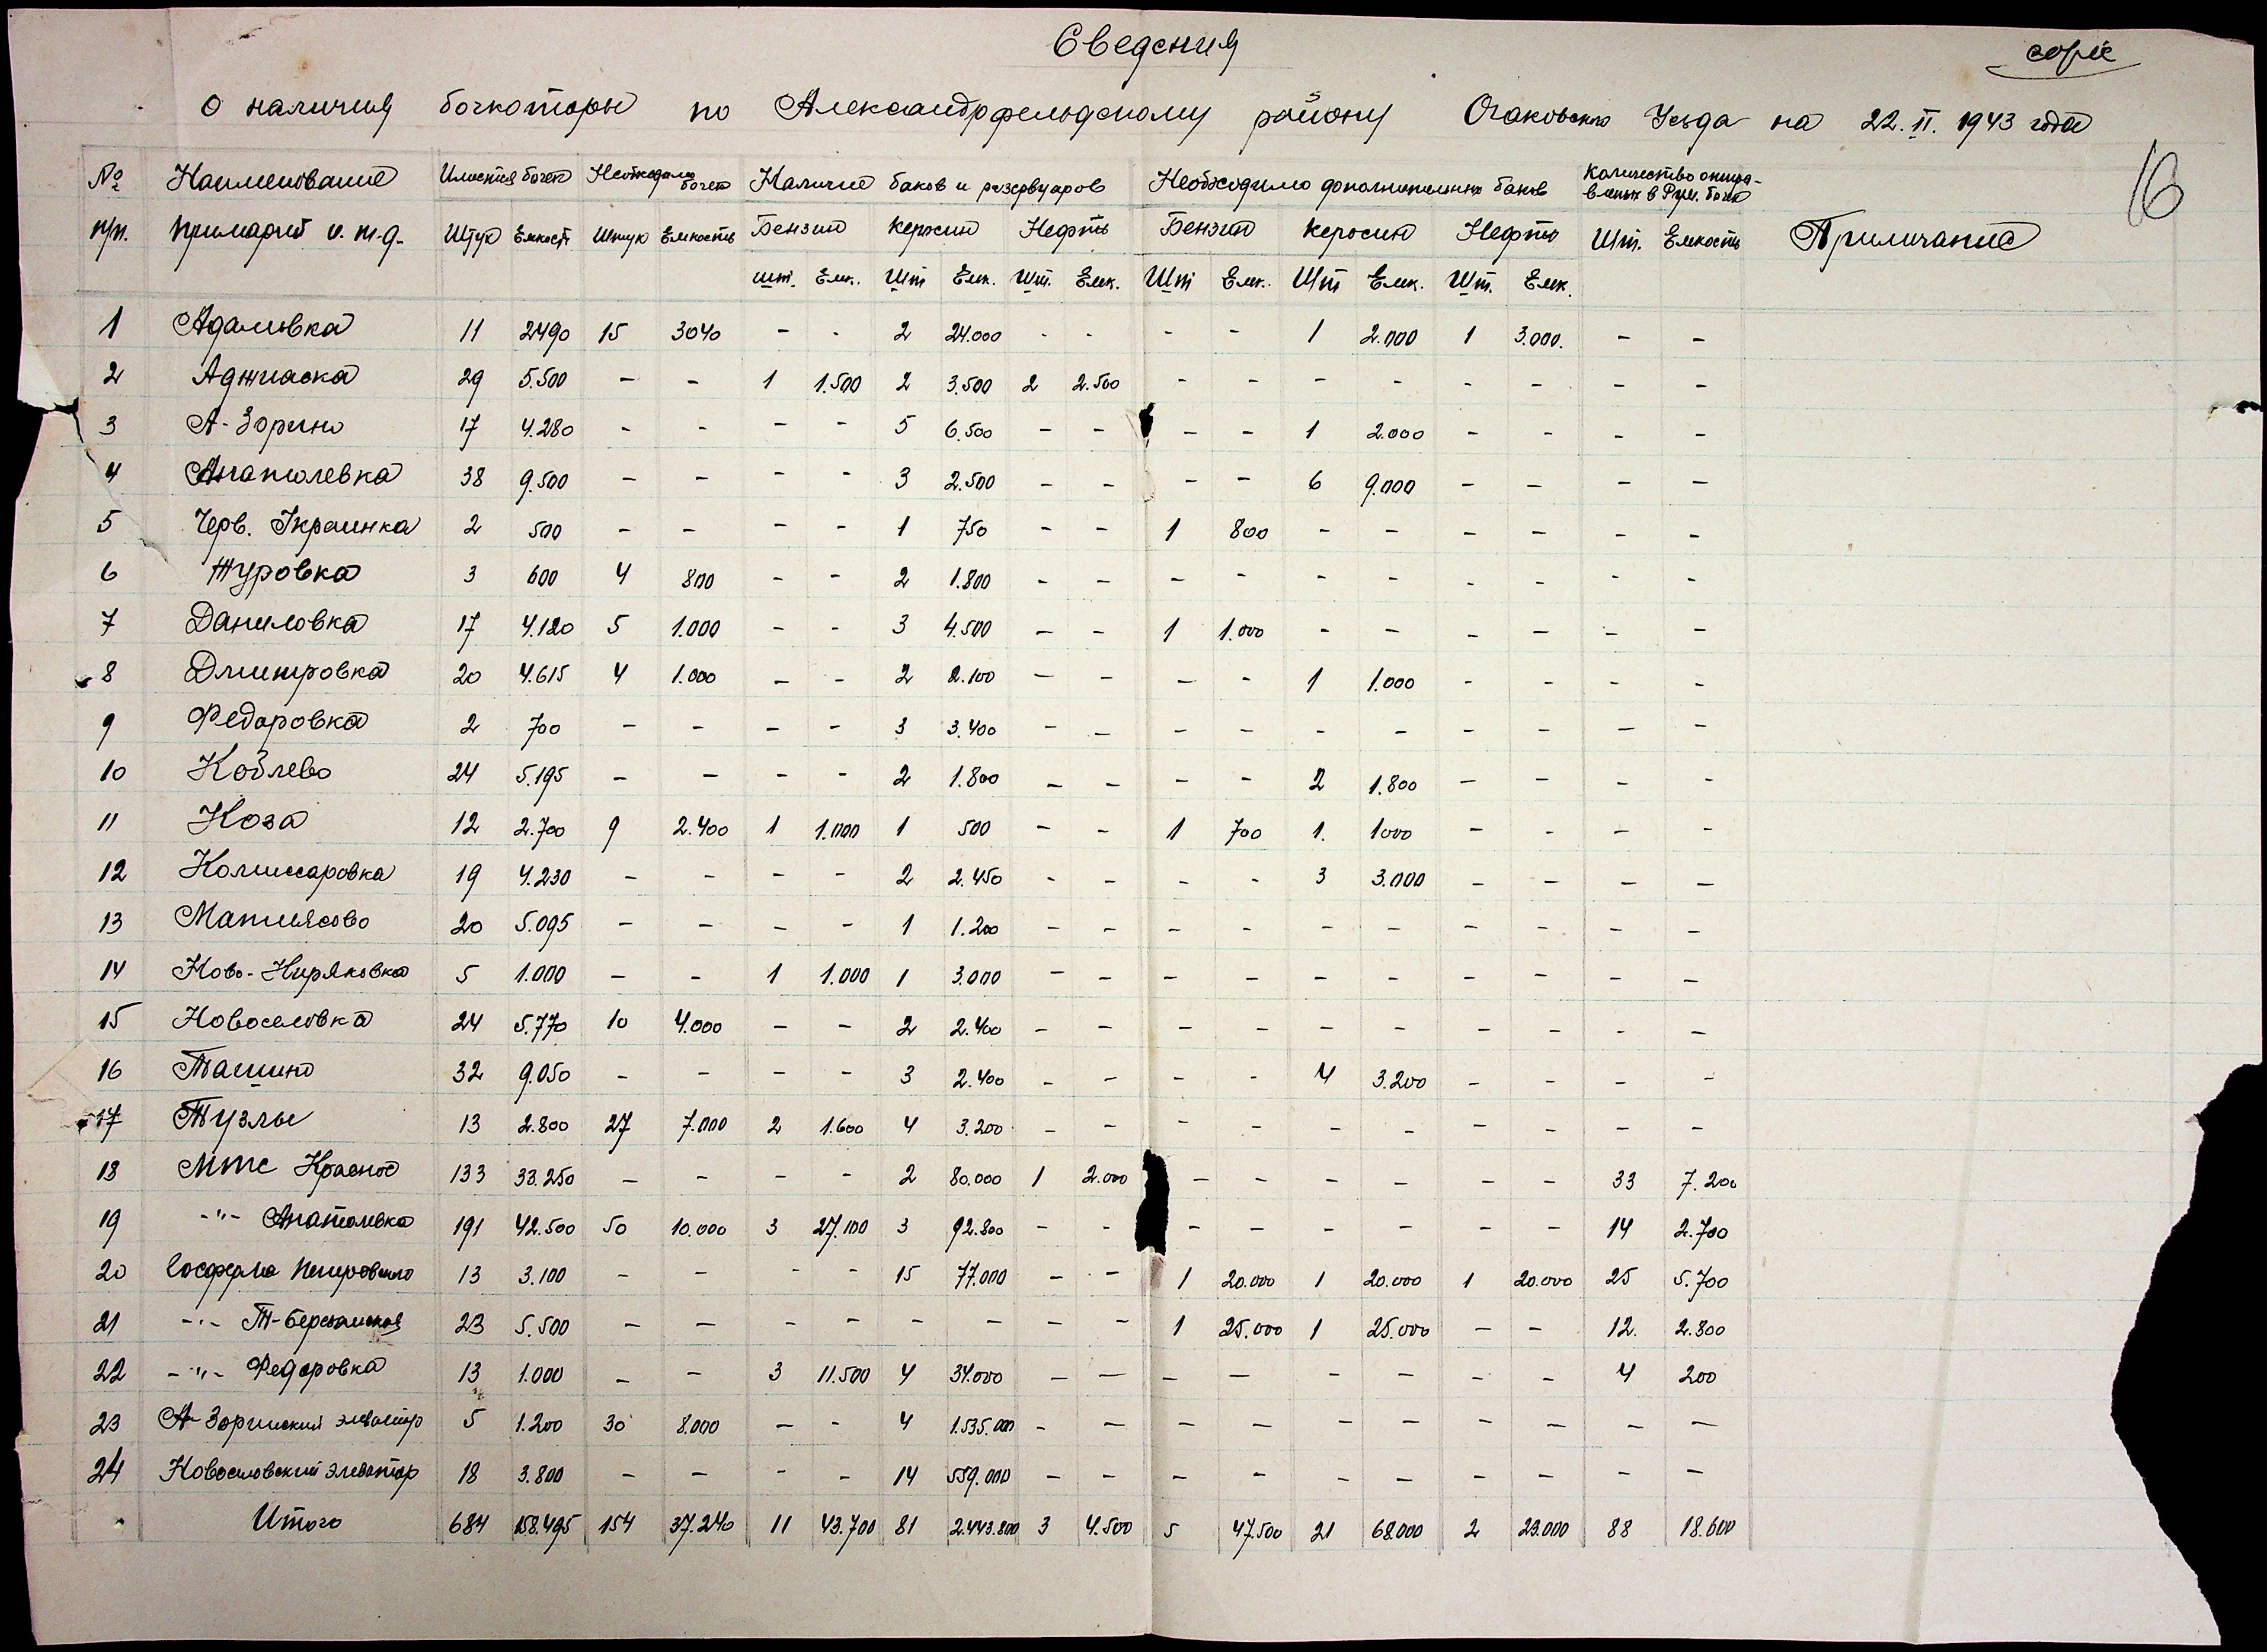 Сведения
copie
о наличия бочкотары по Александрфельдскому району Очаковского Уезда на 22.II.1943 года
16
№ Наименование Имеется бочек Необходимо бочек Наличие баков и резервуаров Необходимо дополнительно баков Количество отправленых в Рум. бочек
п/п. примарий и т.д. Штук Емкость Штук Емкость Бензин Керосин Нефть Бензин Керосин Нефть Шт. Емкость Примичание
шт. Емк. Шт Емк. Шт. Емк. Шт Емк. Шт Емк. Шт. Емк.
1 Адамовка 11 2490 15 3040 - - 2 24.000 - - - - 1 2.000 1 3.000. - -
2 Аджиаска 29 5.500 - - 1 1.500 2 3.500 2 2.500 - - - - - - - -
3 А-Зорино 17 4.280 - - - - 5 6.500 - - - - 1 2.000 - - - -
4 Анатолевка 38 9.500 - - - - 3 2.500 - - - - 6 9.000 - - - -
5 Черв. Украинка 2 500 - - - - 1 750 - - 1 800 - - - - - -
6 Туровка 3 600 4 800 - - 2 1.800 - - - - - - - - - -
7 Даниловка 17 4.120 5 1.000 - - 3 4.500 - - 1 1.000 - - - - - -
8 Дмитровка 20 4.615 4 1.000 - - 2 2.100 - - - - 1 1.000 - - - -
9 Федоровка 2 700 - - - - 3 3.400 - - - - - - - - - -
10 Коблево 24 5.195 - - - - 2 1.800 - - - - 2 1.800 - - - -
11 Коза 12 2.700 9 2.400 1 1.000 1 500 - - 1 700 1. 1000 - - - -
12 Комиссаровка 19 4.230 - - - - 2 2.450 - - - - 3 3.000 - - - -
13 Матиясово 20 5.095 - - - - 1 1.200 - - - - - - - - - -
14 Ново-Киряковка 5 1.000 - - 1 1.000 1 3.000 - - - - - - - - - -
15 Новоселовка 24 5.770 10 4.000 - - 2 2.400 - - - - - - - - - -
16 Ташино 32 9.050 - - - - 3 2.400 - - - - 4 3.200 - - - -
17 Тузлы 13 2.800 27 7.000 2 1.600 4 3.200 - - - - - - - - - -
18 МТС Красное 133 33.250 - - - - 2 80.000 1 2.000 - - - - - - 33 7.200
19 -"- Анатолевка 191 42.500 50 10.000 3 27.100 3 92.800 - - - - - - - - 14 2.700
20 Госферма Петровского 13 3.100 - - - - 15 77.000 - - 1 20.000 1 20.000 1 20.000 25 5.700
21 -"- Т-Березанская 23 5.500 - - - - - - - - 1 25.000 1 25.000 - - 12. 2.800
22 -"- Федоровка 13 1.000 - - 3 11.500 4 34.000 - - - - - - - - 4 200
23 А-Зоринский элеватор 5 1.200 30 8.000 - - 4 1.535.000 - - - - - - - - - -
24 Новоселовский элеватор 18 3.800 - - - - 14 559.000 - - - - - - - - - -
Итого 684 158.495 154 37.240 11 43.700 81 2.443.800 3 4.500 5 47.500 21 68.000 2 23.000 88 18.600